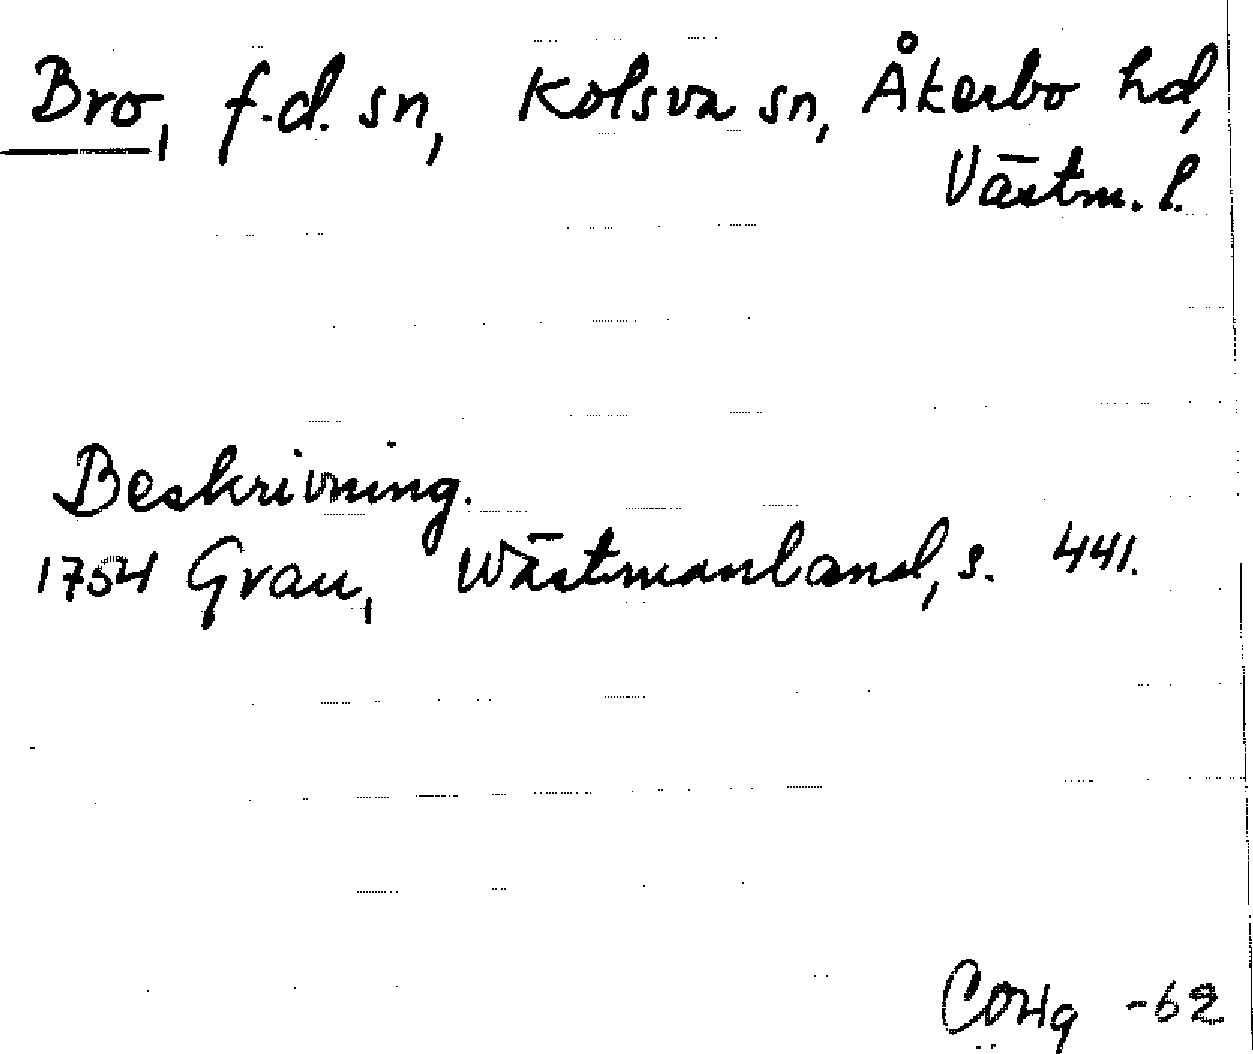 Bro, f.d. sn, Kolsva sn, Åkerbo hd,
Västm. l.
Beskrivning.
1754 Grau, Wästmanland, s. 441.
-62